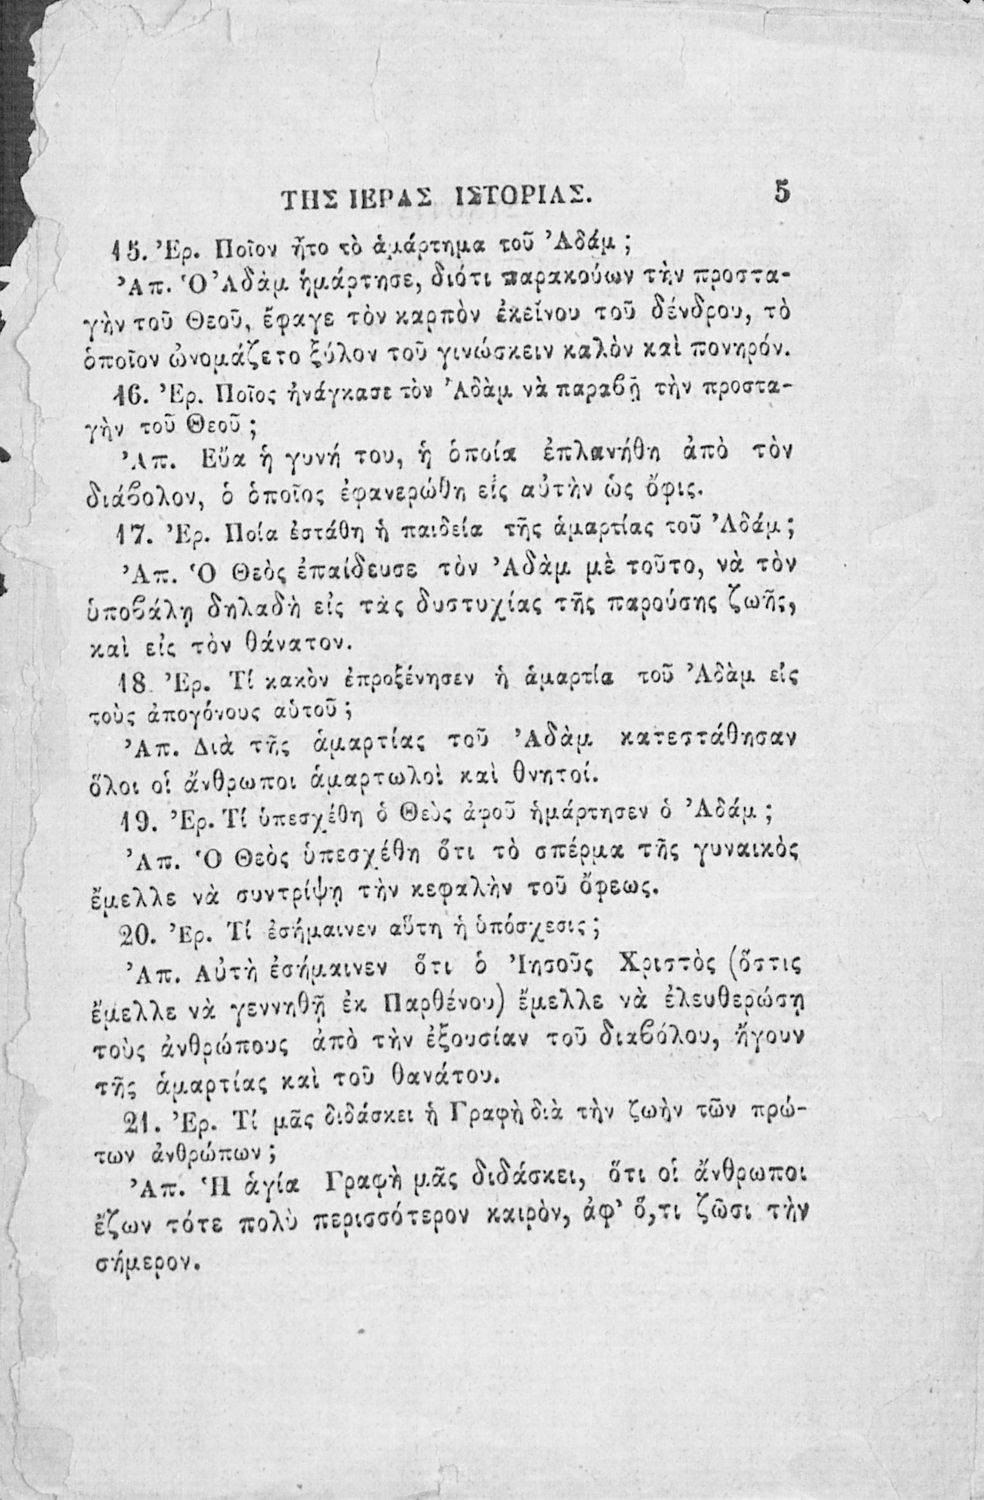 ΤΗΣ ΙΕΡΑΣ ΙΣΤΟΡΙΑΣ. 5
15. Ἐρ. Ποῖον ἦτο τὸ ἁμάρτημα τοῦ Ἀδάμ ;
Ἀπ. Ὁ Ἀδὰμ ἡμάρτησε, διότι παρακούων τὴν προστα-
γὴν τοῦ Θεοῦ, ἔφαγε τὸν καρπὸν ἐκείνου τοῦ δένδρου, τὸ
ὁποῖον ὠνομάζετο ξύλον τοῦ γινώσκειν καλὸν καὶ πονηρόν.
16. Ἐρ. Ποῖος ἠνάγκασε τὸν Ἀδὰμ νὰ παραβῇ τὴν προστα-
γὴν τοῦ Θεοῦ ;
Ἀπ. Εὔα ἡ γυνή του, ἡ ὁποία ἐπλανήθη ἀπὸ τὸν
διάβολον, ὁ ὁποῖος ἐφανερώθη εἰς αὐτὴν ὡς ὄφις.
17. Ἐρ. Ποία ἐστάθη ἡ παιδεία τῆς ἁμαρτίας τοῦ Ἀδάμ ;
Ἀπ. Ὁ Θεὸς ἐπαίδευσε τὸν Ἀδὰμ μὲ τοῦτο, νὰ τὸν
ὑποβάλῃ δηλαδὴ εἰς τὰς δυστυχίας τῆς παρούσης ζωῆς,
καὶ εἰς τὸν θάνατον.
18. Ἐρ. Τί κακὸν ἐπροξένησεν ἡ ἁμαρτία τοῦ Ἀδὰμ εἰς
τοὺς ἀπογόνους αὑτοῦ ;
Ἀπ. Διὰ τῆς ἁμαρτίας τοῦ Ἀδὰμ κατεστάθησαν
ὅλοι οἱ ἄνθρωποι ἁμαρτωλοὶ καὶ θνητοί.
19. Ἐρ. Τί ὑπεσχέθη ὁ Θεὸς ἀφοῦ ἡμάρτησεν ὁ Ἀδάμ ;
Ἀπ. Ὁ Θεὸς ὑπεσχέθη ὅτι τὸ σπέρμα τῆς γυναικὸς
ἔμελλε νὰ συντρίψῃ τὴν κεφαλὴν τοῦ ὄφεως.
20. Ἐρ. Τί ἐσήμαινεν αὕτη ἡ ὑπόσχεσις ;
Ἀπ. Αὐτὴ ἐσήμαινεν ὅτι ὁ Ἰησοῦς Χριστὸς (ὅστις
ἔμελλε νὰ γεννηθῇ ἐκ Παρθένου) ἔμελλε νὰ ἐλευθερώσῃ
τοὺς ἀνθρώπους ἀπὸ τὴν ἐξουσίαν τοῦ διαβόλου, ἤγουν
τῆς ἁμαρτίας καὶ τοῦ θανάτου.
21. Ἐρ. Τί μᾶς διδάσκει ἡ Γραφὴ διὰ τὴν ζωὴν τῶν πρώ-
των ἀνθρώπων ;
Ἀπ. Ἡ ἁγία Γραφὴ μᾶς διδάσκει, ὅτι οἱ ἄνθρωποι
ἔζων τότε πολὺ περισσότερον καιρὸν, ἀφ' ὅ,τι ζῶσι τὴν
σήμερον.